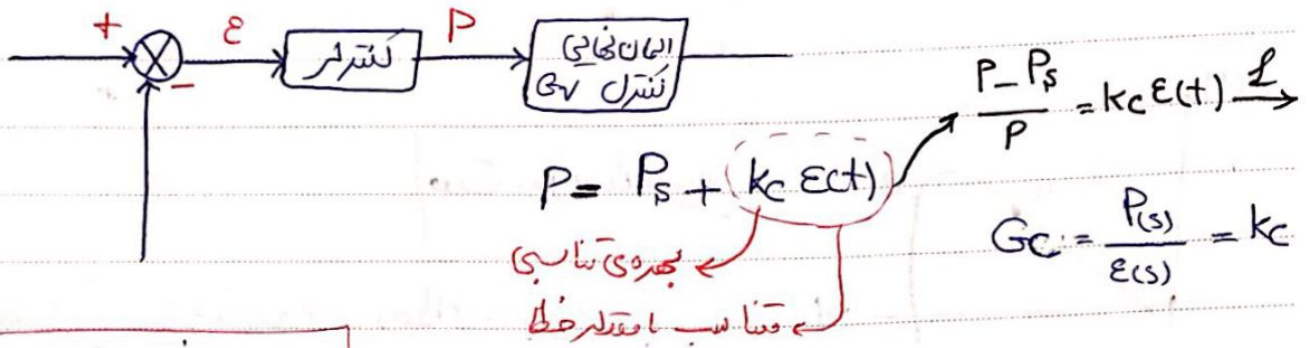 + ε P
-
کنترلر
المان نهایی
کنترل Gv
P - Ps / P = kc ε(t) L→
P = Ps + kc ε(t)
Gc = P(s) / ε(s) = kc
بهره‌ی تناسبی
متناسب با مقدار خطا